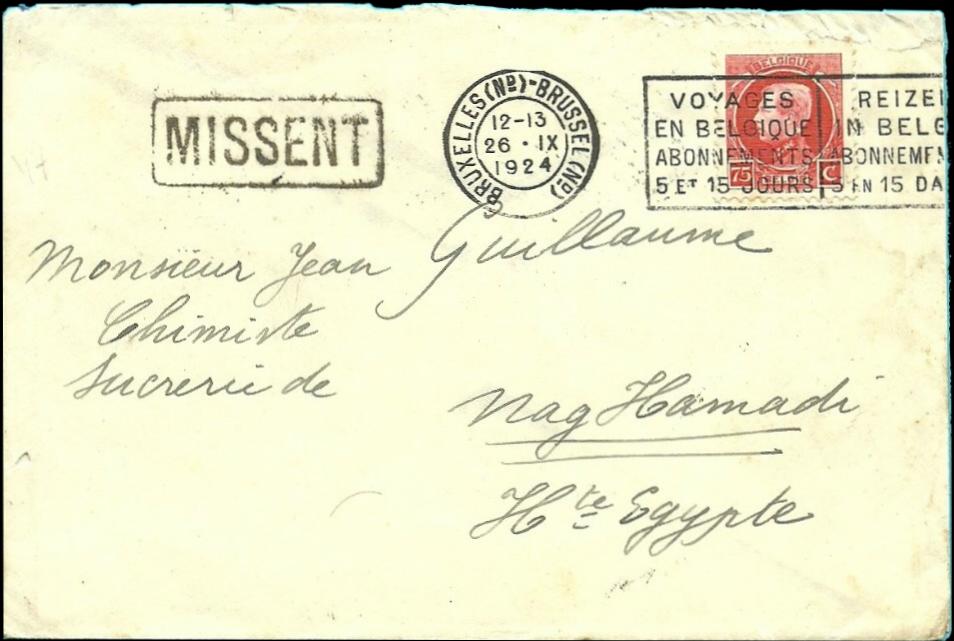 MISSENT
BRUXELLES (Nᴅ)-BRUSSEL (Nᴅ)
12-13
26 · IX
1924
BELGIQUE
75 C
VOYAGES
EN BELGIQUE
ABONNEMENTS
5 ET 15 JOURS
REIZEN
IN BELG
ABONNEMEN
5 EN 15 DA
Monsieur Jean Guillaume
Chimiste
Sucrerie de
Nag Hamadi
Hte Egypte